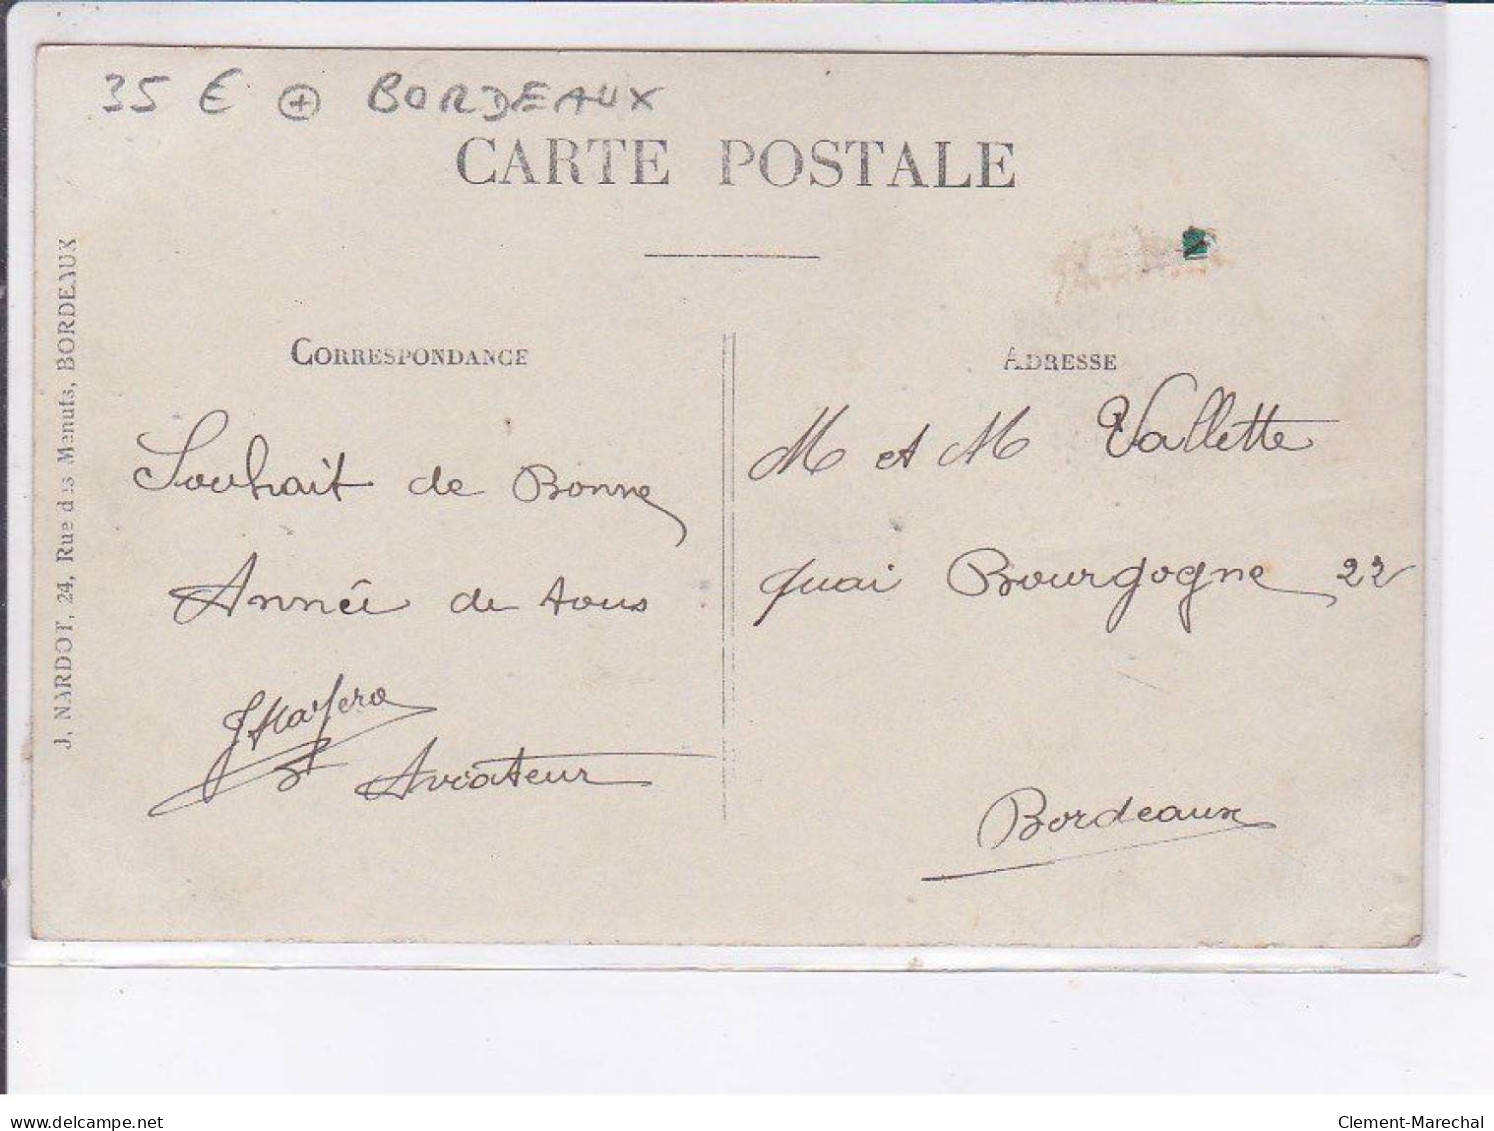 35 € + BORDEAUX
CARTE POSTALE
J. NARDOT, 24, Rue des Menuts, BORDEAUX
CORRESPONDANCE
Souhait de Bonne
Année de tous
Aviateur
ADRESSE
M et M Vallette
quai Bourgogne 22
Bordeaux
delcampe.net
Clement-Marechal